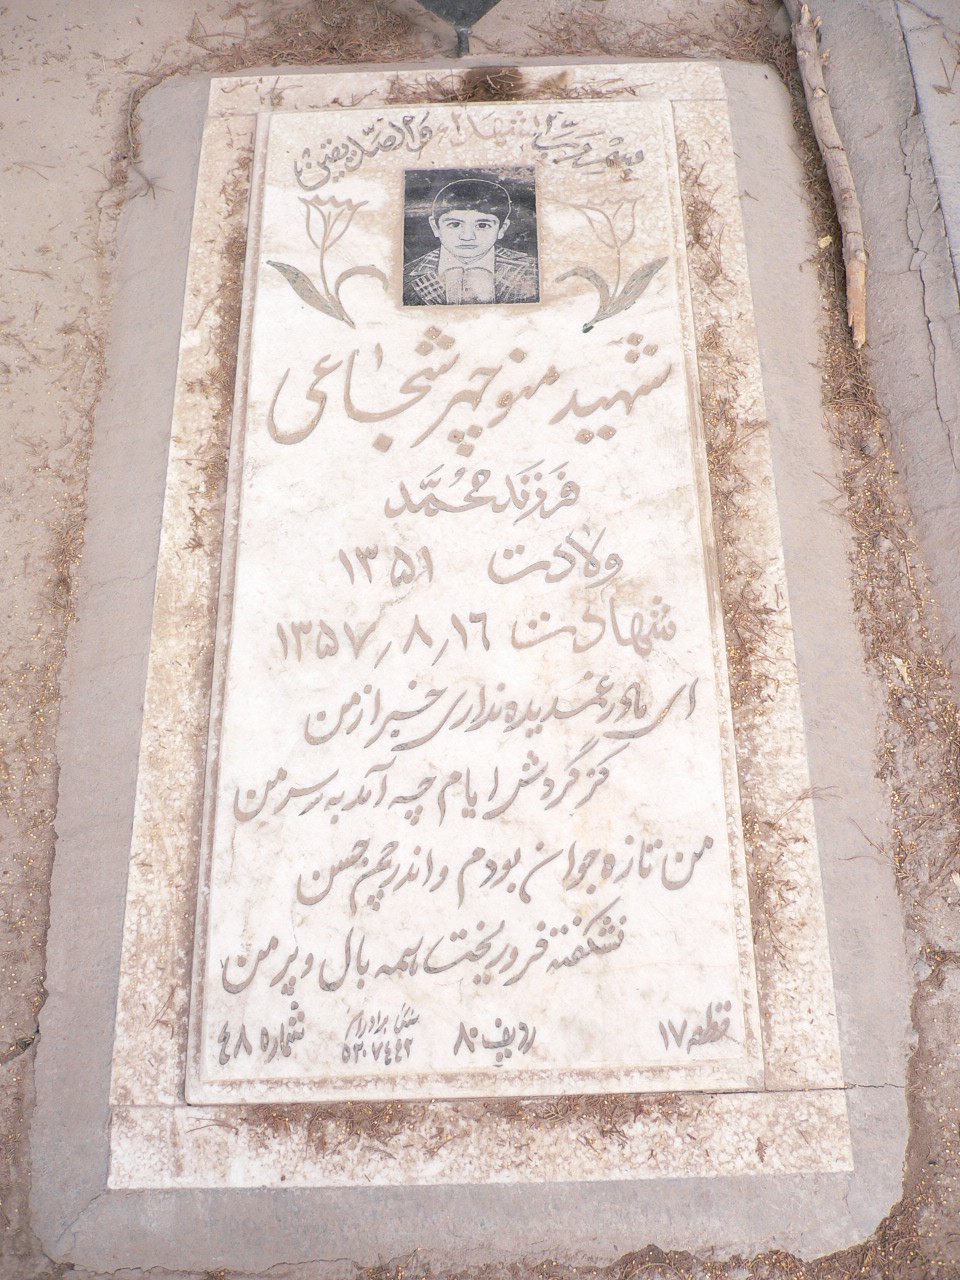 بسم رب الشهداء والصدیقین
شهید منوچهر شجاعی
فرزند محمد
ولادت ۱۳۵۱
شهادت ۱۳۵۷٫۸٫۱۶
ای مادر غمدیده نداری خبر از من
کز گردش ایام چه آمد به سر من
من تازه جوان بودم و اندر چمن حسن
نشکفته فرو ریخت همه بال و پر من
قطعه ۱۷ ردیف ۸۰ شماره ۴۸
سنگ برادران
۵۳۰۷۴۴۲